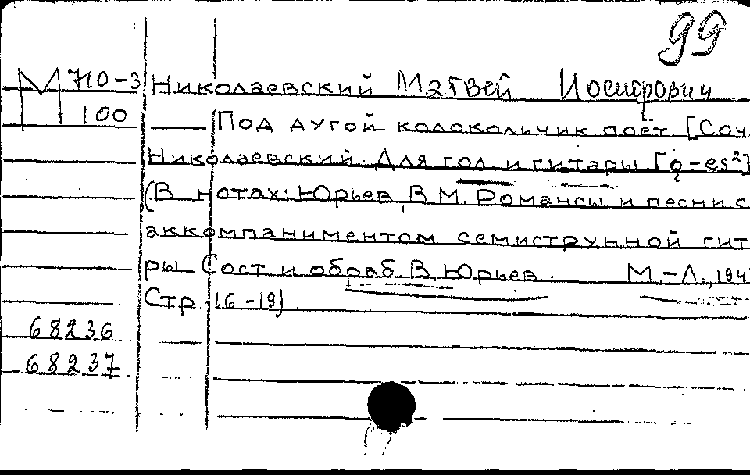 99
М 710-3 Николаевский Матвей Иосифович
100
— Под дугой колокольчик поет [Соч.
Николаевский. Для гол. и гитары [g-es²]
(В нотах: Юрьев, В.М. Романсы и песни с
аккомпаниментом семиструнной гит
ры Сост и обраб. В. Юрьев. М.-Л., 194
Стр. 16-19)
68236
68237